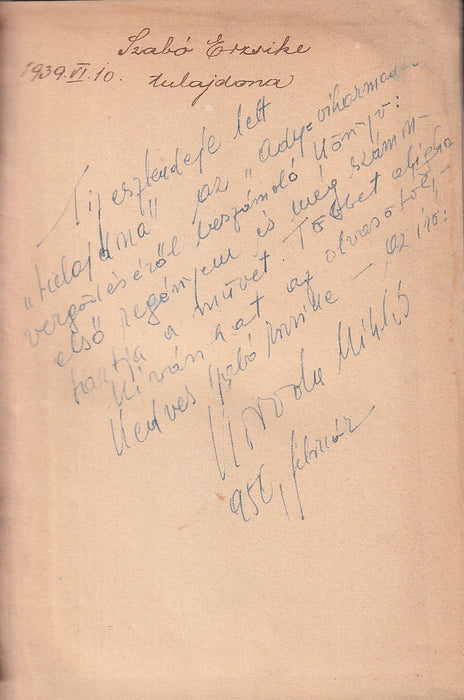 Szabó Erzsike
1939.VI.10. tulajdona
Tíz esztendeje lett
„tulajdona” az „Ady=viharmadár
vergődéséről beszámoló könyv:
első regényem és még számon-
tartja a művet. Többet aligha
kívánhat az olvasótól,-
Kedves Szabó — az író:
Miklós
950, február